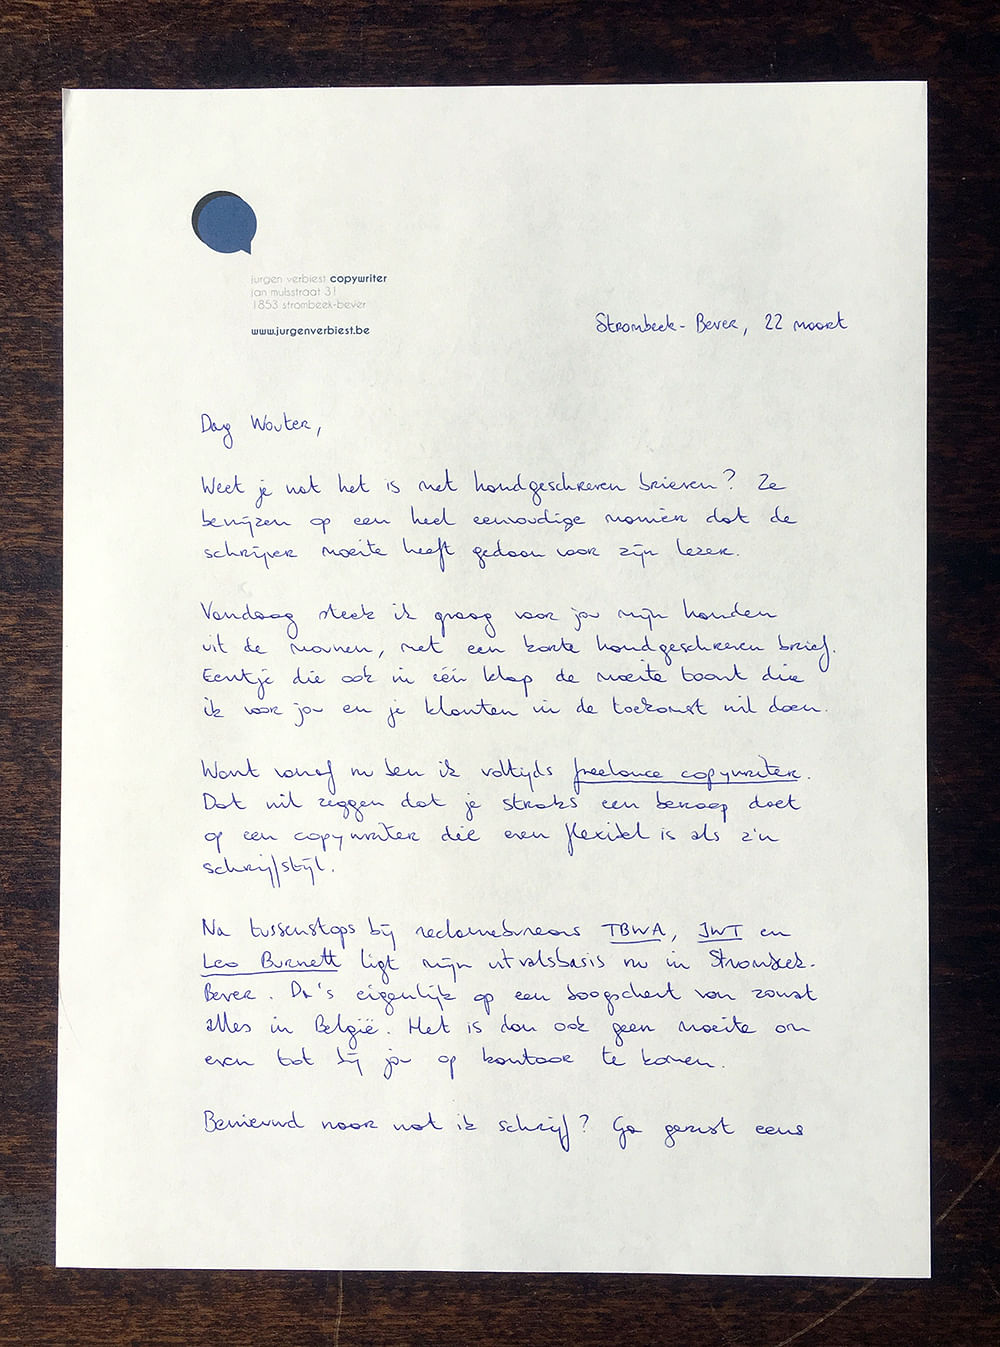 jurgen verbiest copywriter
jan mulsstraat 31
1853 strombeek-bever
www.jurgenverbiest.be
Strombeek-Bever, 22 maart
Dag Wouter,
Weet je wat het is met handgeschreven brieven? Ze
bewijzen op een heel eenvoudige manier dat de
schrijver moeite heeft gedaan voor zijn lezer.
Vandaag steek ik graag voor jou mijn handen
uit de mouwen, met een korte handgeschreven brief.
Eentje die ook in één klap de moeite toont die
ik voor jou en je klanten in de toekomst wil doen.
Want vanaf nu ben ik voltijds freelance copywriter.
Dat wil zeggen dat je straks een beroep doet
op een copywriter die even flexibel is als z'n
schrijfstijl.
Na tussenstops bij reclamebureaus TBWA, JWT en
Leo Burnett ligt mijn uitvalsbasis nu in Strombeek-
Bever. Da's eigenlijk op een boogscheut van zowat
alles in België. Het is dan ook geen moeite om
even tot bij jou op kantoor te komen.
Benieuwd naar wat ik schrijf? Ga gerust eens